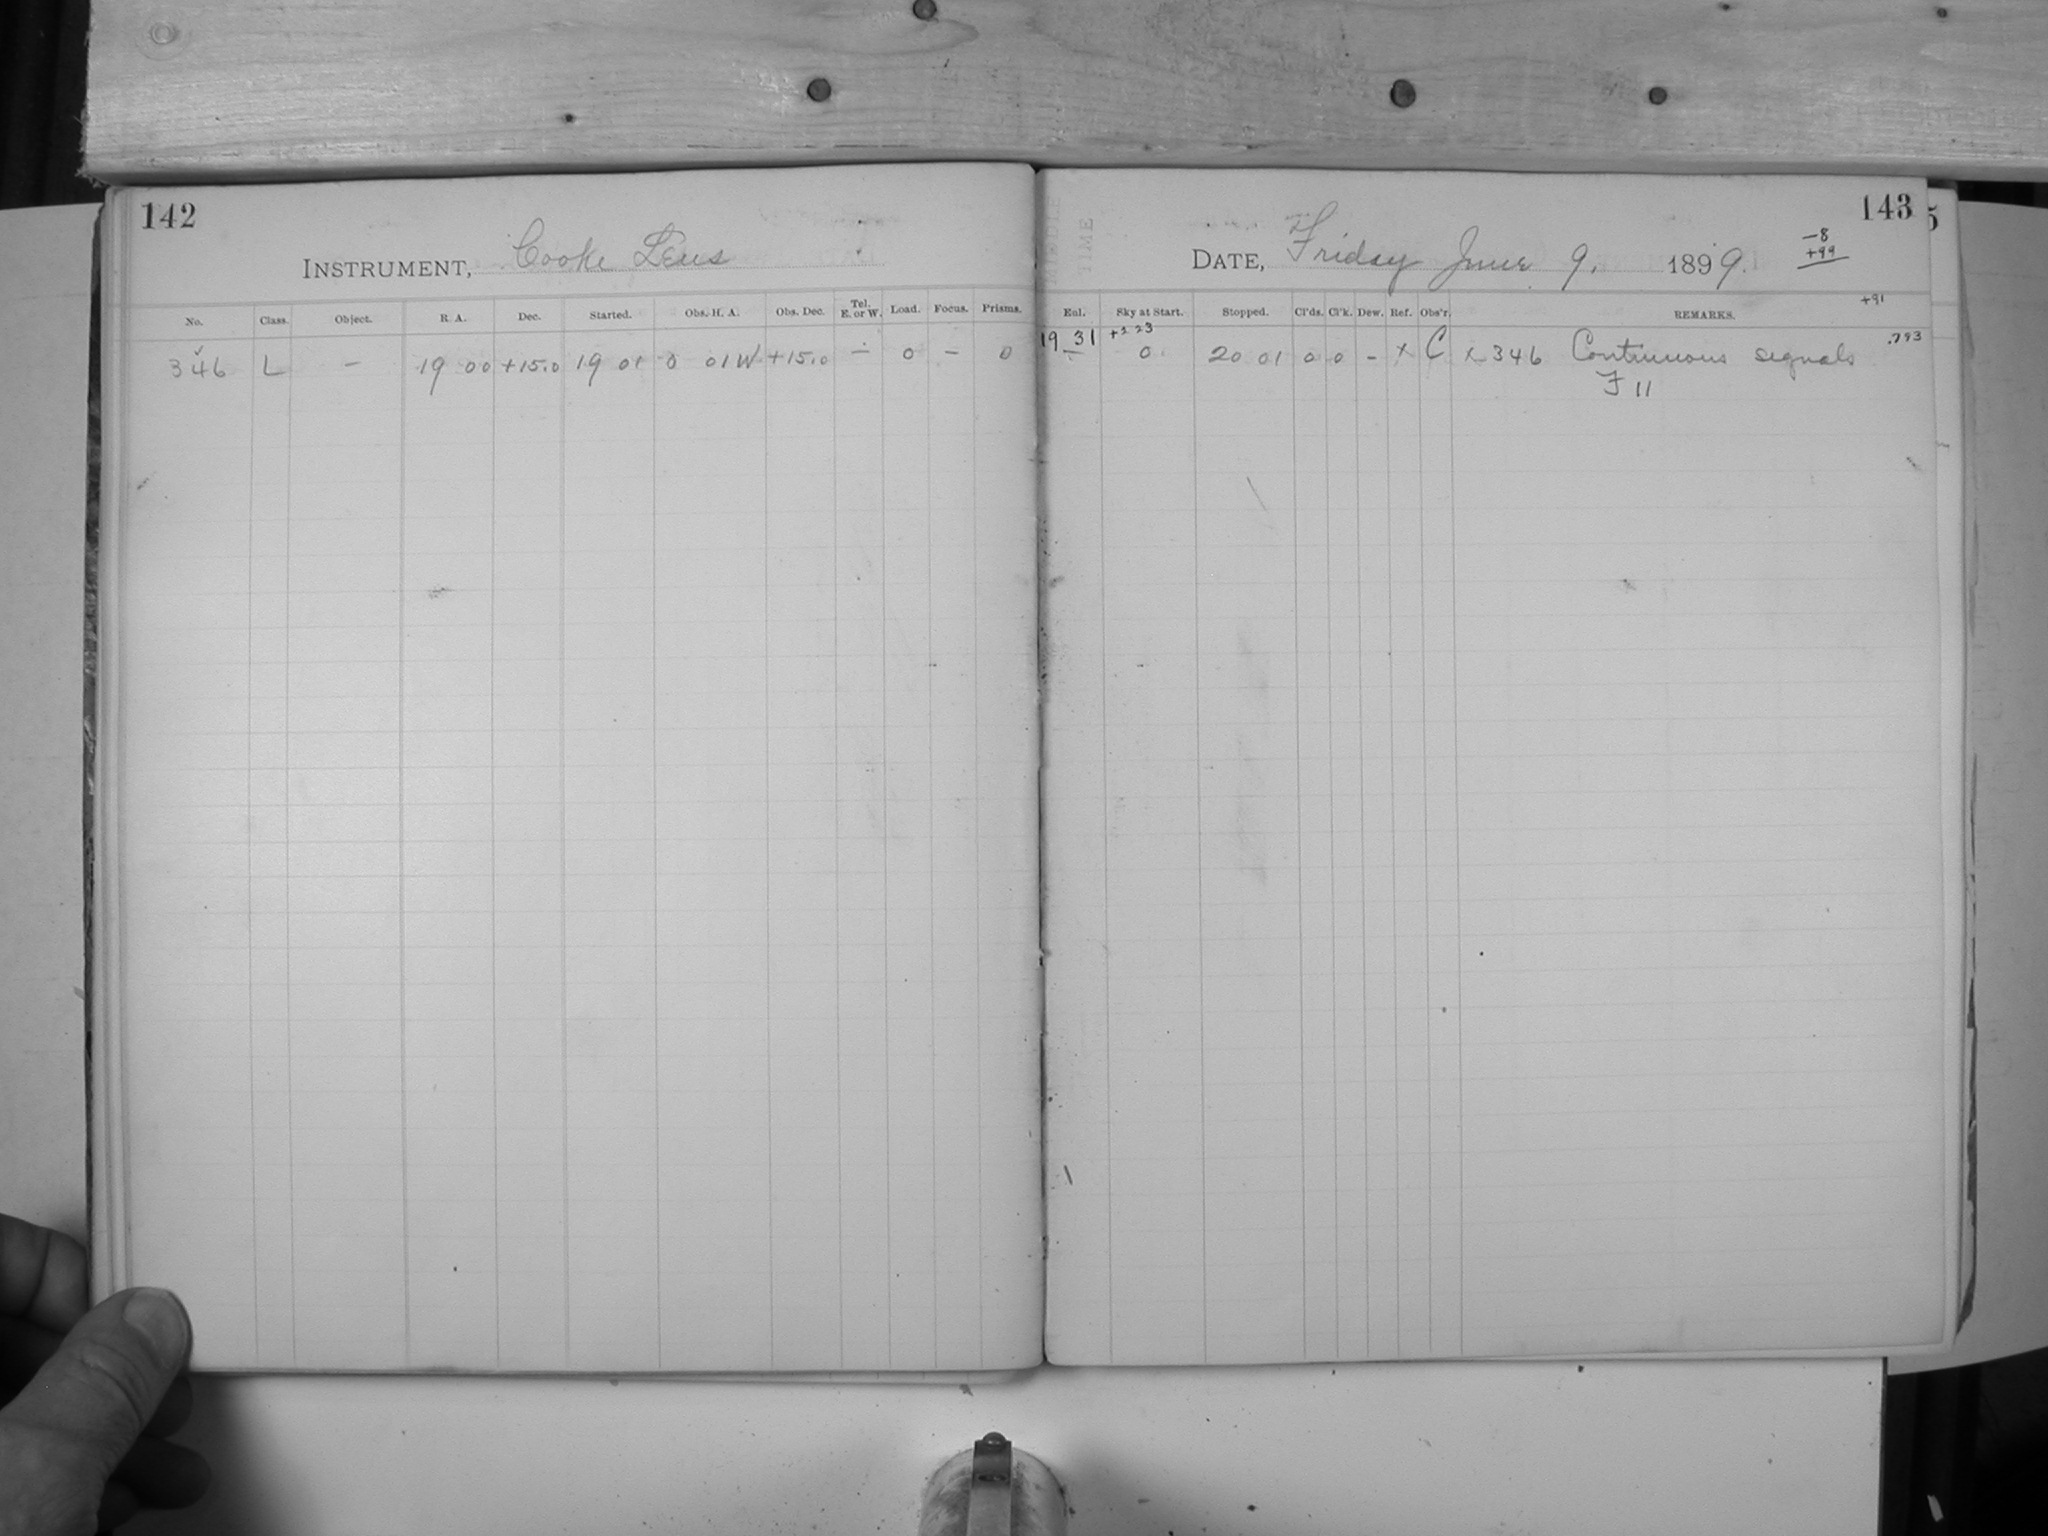 142
INSTRUMENT, Cooke Lens
No. Class. Object. R. A. Dec. Started. Obs. H. A. Obs. Dec. Tel. E. or W. Load. Focus. Prisms.
346 L – 19 00 +15.0 19 01 0 01 W +15.0 – 0 – 0
143
DATE, Friday June 9. 1899.
-8
+99
+91
Enl. Sky at Start. Stopped. Cl'ds. Cl'k. Dew. Ref. Obs'r. REMARKS.
19 31 +2 23 .793
– 0. 20 01 0 0 – x C L 346 Continuous signals
F 11